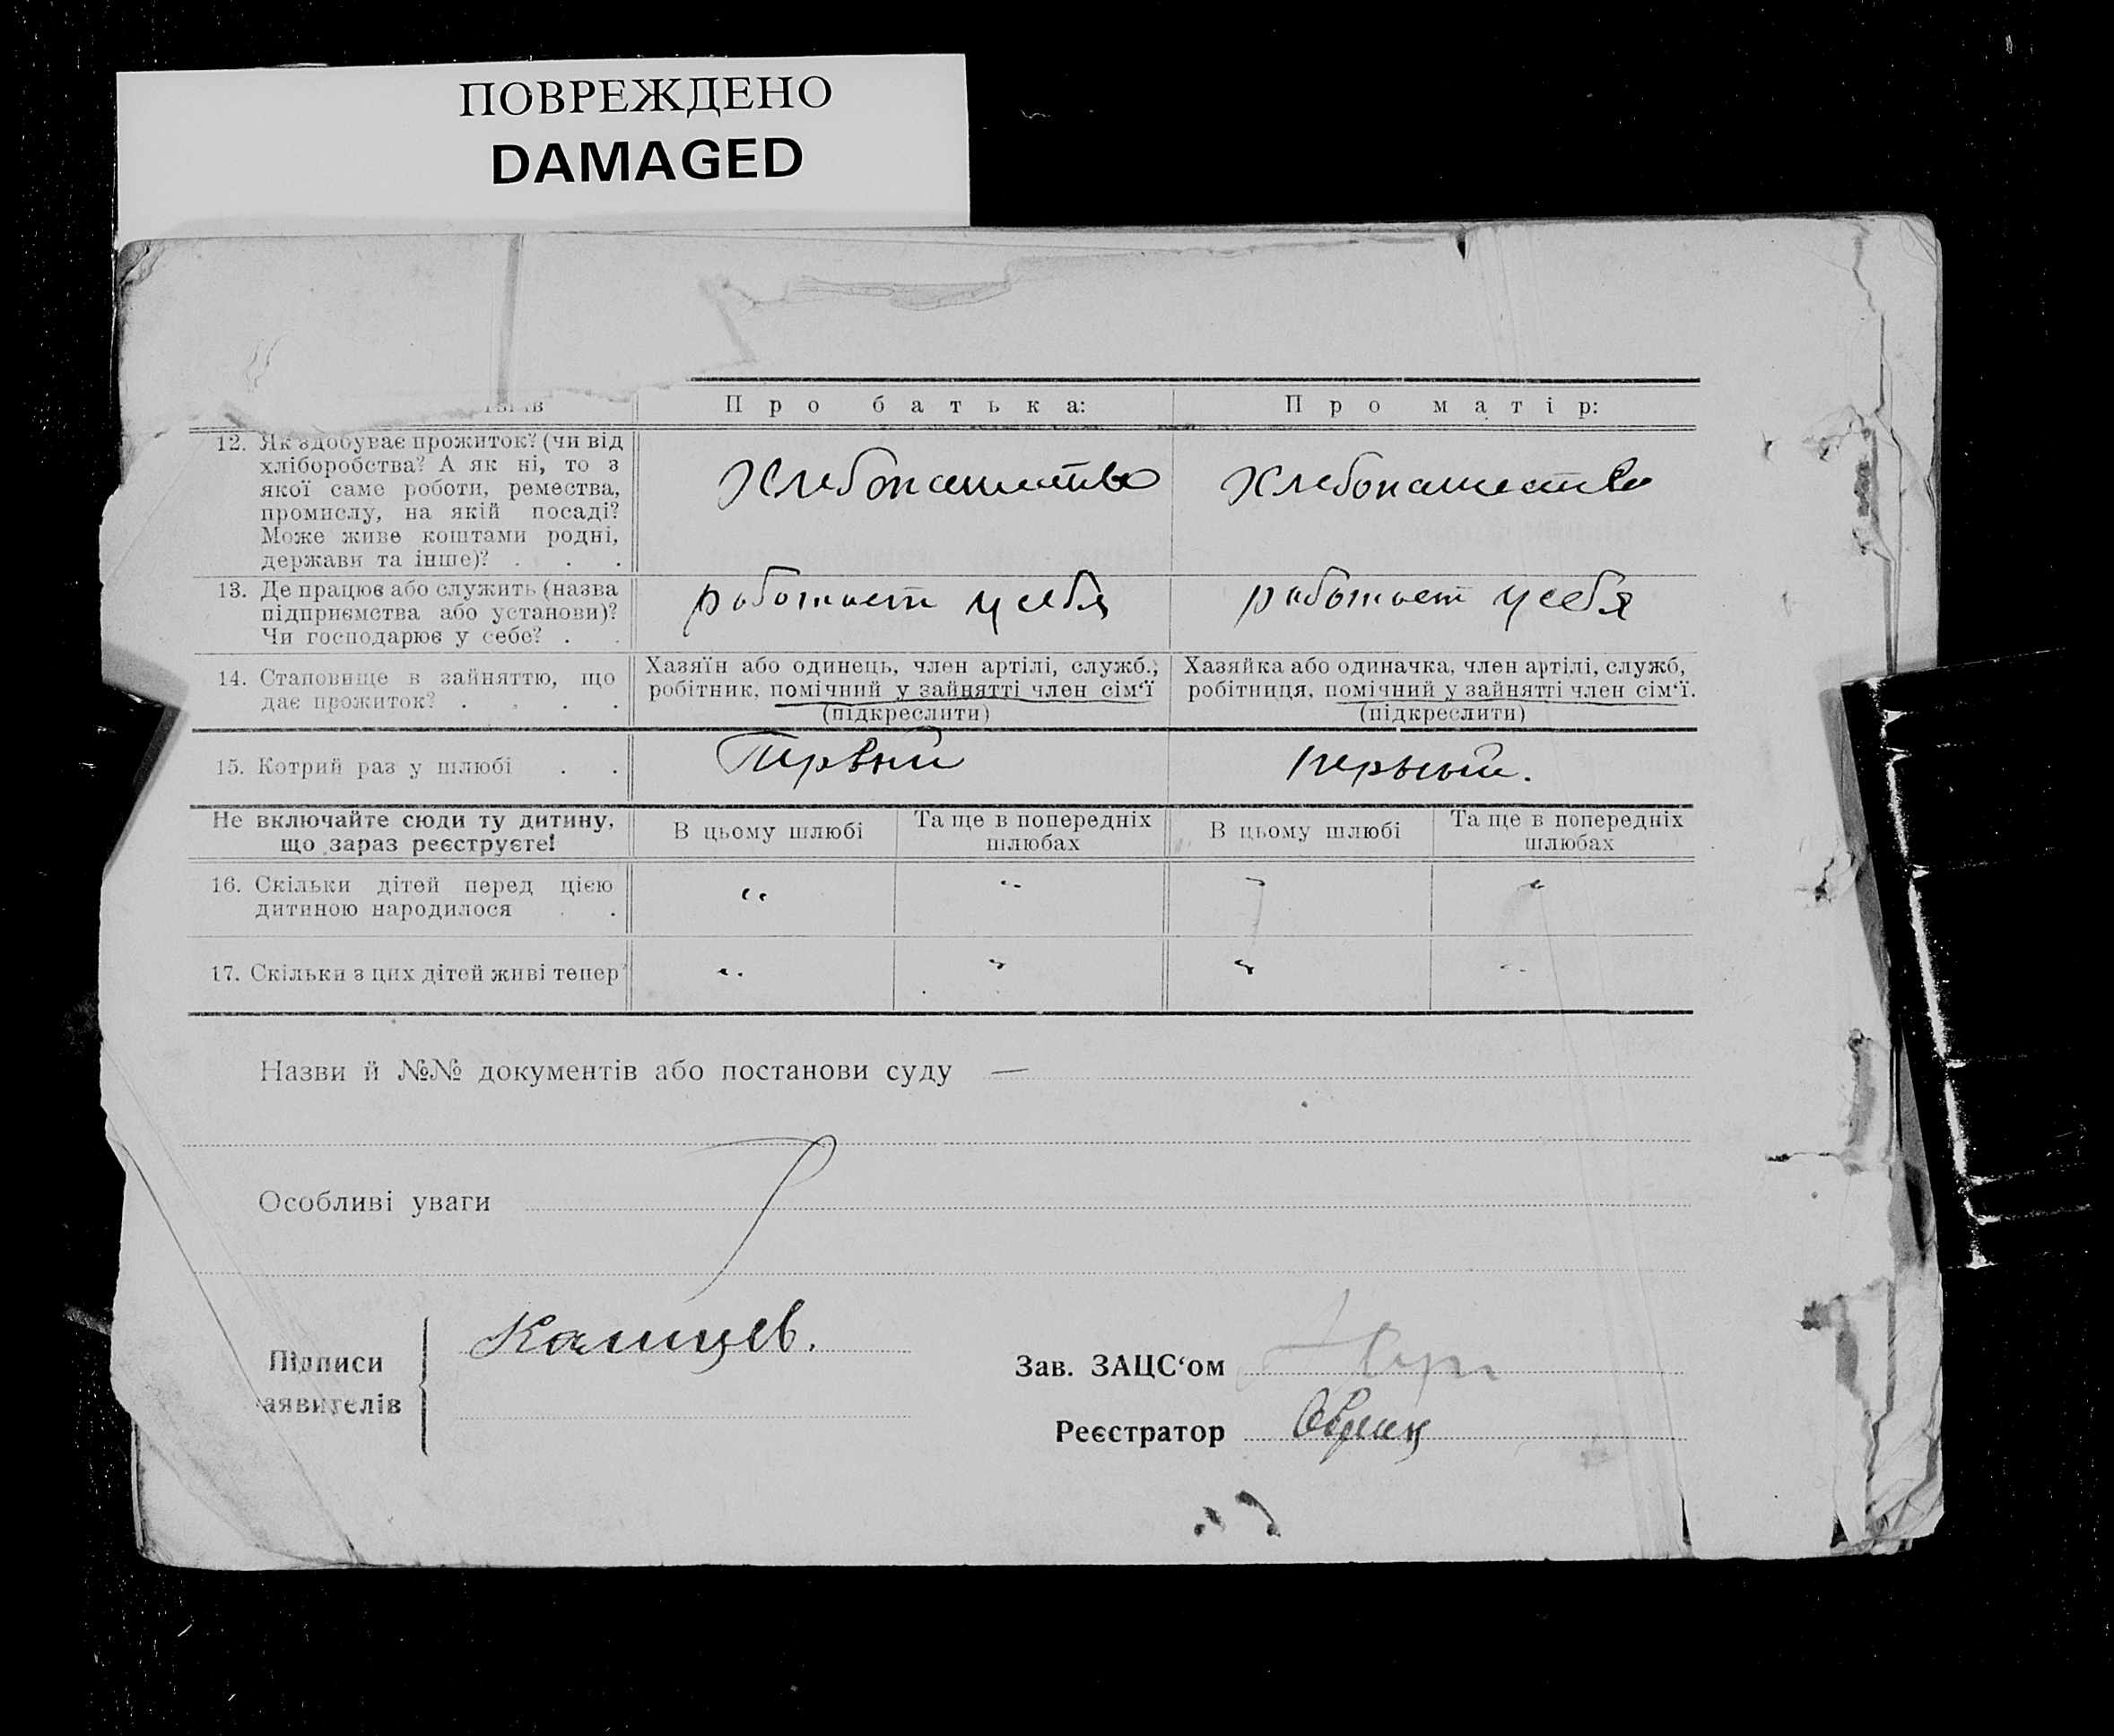 ПОВРЕЖДЕНО
DAMAGED
Про батька:
Про матір:
12. Як здобуває прожиток? (чи від
хліборобства? А як ні, то з
якої саме роботи, ремества,
промислу, на якій посаді?
Може живе коштами родні,
держави та інше)? . . .
Хлебопашество
Хлебопашество
13. Де працює або служить (назва
підприємства або установи)?
Чи господарює у себе? . .
работает у себя
работает у себя
14. Становище в зайняттю, що
дає прожиток? . . . .
Хазяїн або одинець, член артілі, служб.,
робітник, помічний у зайнятті член сім‘ї
(підкреслити)
Хазяйка або одиначка, член артілі, служб,
робітниця, помічний у зайнятті член сім‘ї.
(підкреслити)
15. Котрий раз у шлюбі . .
Первый
первый.
Не включайте сюди ту дитину,
що зараз реєструєте!
В цьому шлюбі
Та ще в попередніх
шлюбах
В цьому шлюбі
Та ще в попередніх
шлюбах
16. Скільки дітей перед цією
дитиною народилося . .
"
"
"
"
17. Скільки з цих дітей живі тепер
"
"
"
"
Назви й №№ документів або постанови суду —
Особливі уваги
Підписи
аявителів
Зав. ЗАЦС‘ом
Реєстратор